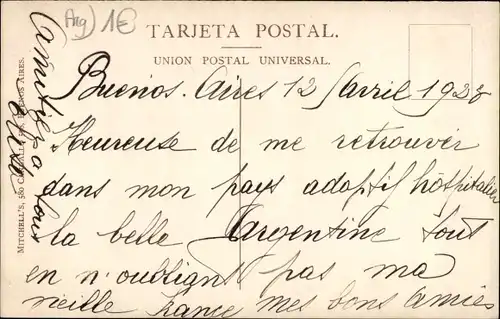 Arg) 1€
TARJETA POSTAL.
UNION POSTAL UNIVERSAL.
Buenos. Aires 12 / Avril 1928
Heureuse de me retrouver
dans mon pays adoptif hôspitalier
la belle Argentine tout
en n'oubliant pas ma
vieille France mes bons amies
Amitiés a tous
MITCHELL'S, 580 BUENOS AIRES.